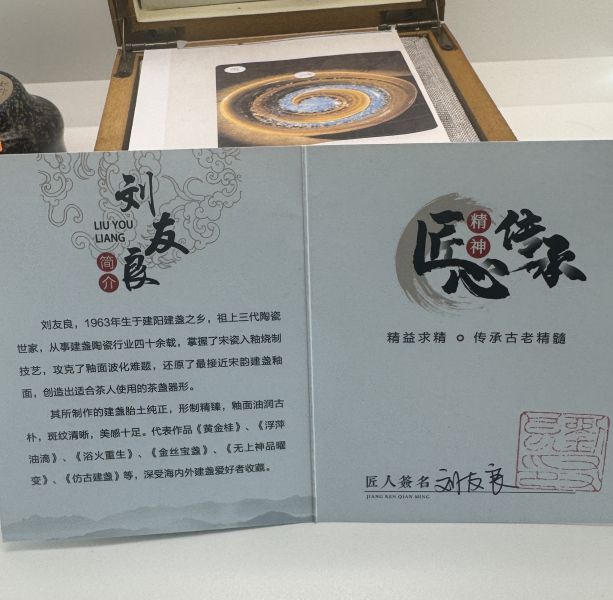 刘友良
LIU YOU
LIANG
简介
刘友良，1963年生于建阳建盏之乡，祖上三代陶瓷
世家，从事建盏陶瓷行业四十余载，掌握了宋瓷入釉烧制
技艺，攻克了釉面波化难题，还原了最接近宋韵建盏釉
面，创造出适合茶人使用的茶盏器形。
其所制作的建盏胎土纯正，形制精臻，釉面油润古
朴，斑纹清晰，美感十足。代表作品《黄金桂》、《浮萍
油滴》、《浴火重生》、《金丝宝盏》、《无上神品曜
变》、《仿古建盏》等，深受海内外建盏爱好者收藏。
匠心传承
精神
精益求精 传承古老精髓
匠人簽名 刘友良
JIANG REN QIAN MING